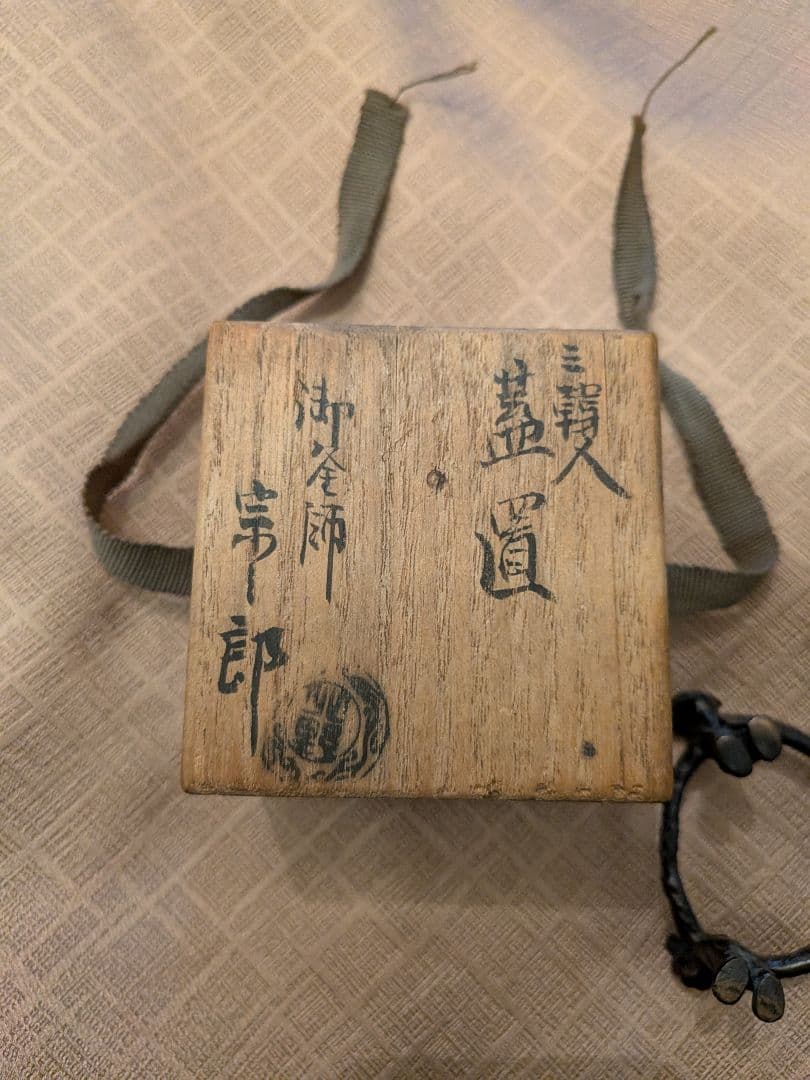 三韓人
蓋置
御釜師
宗一郎